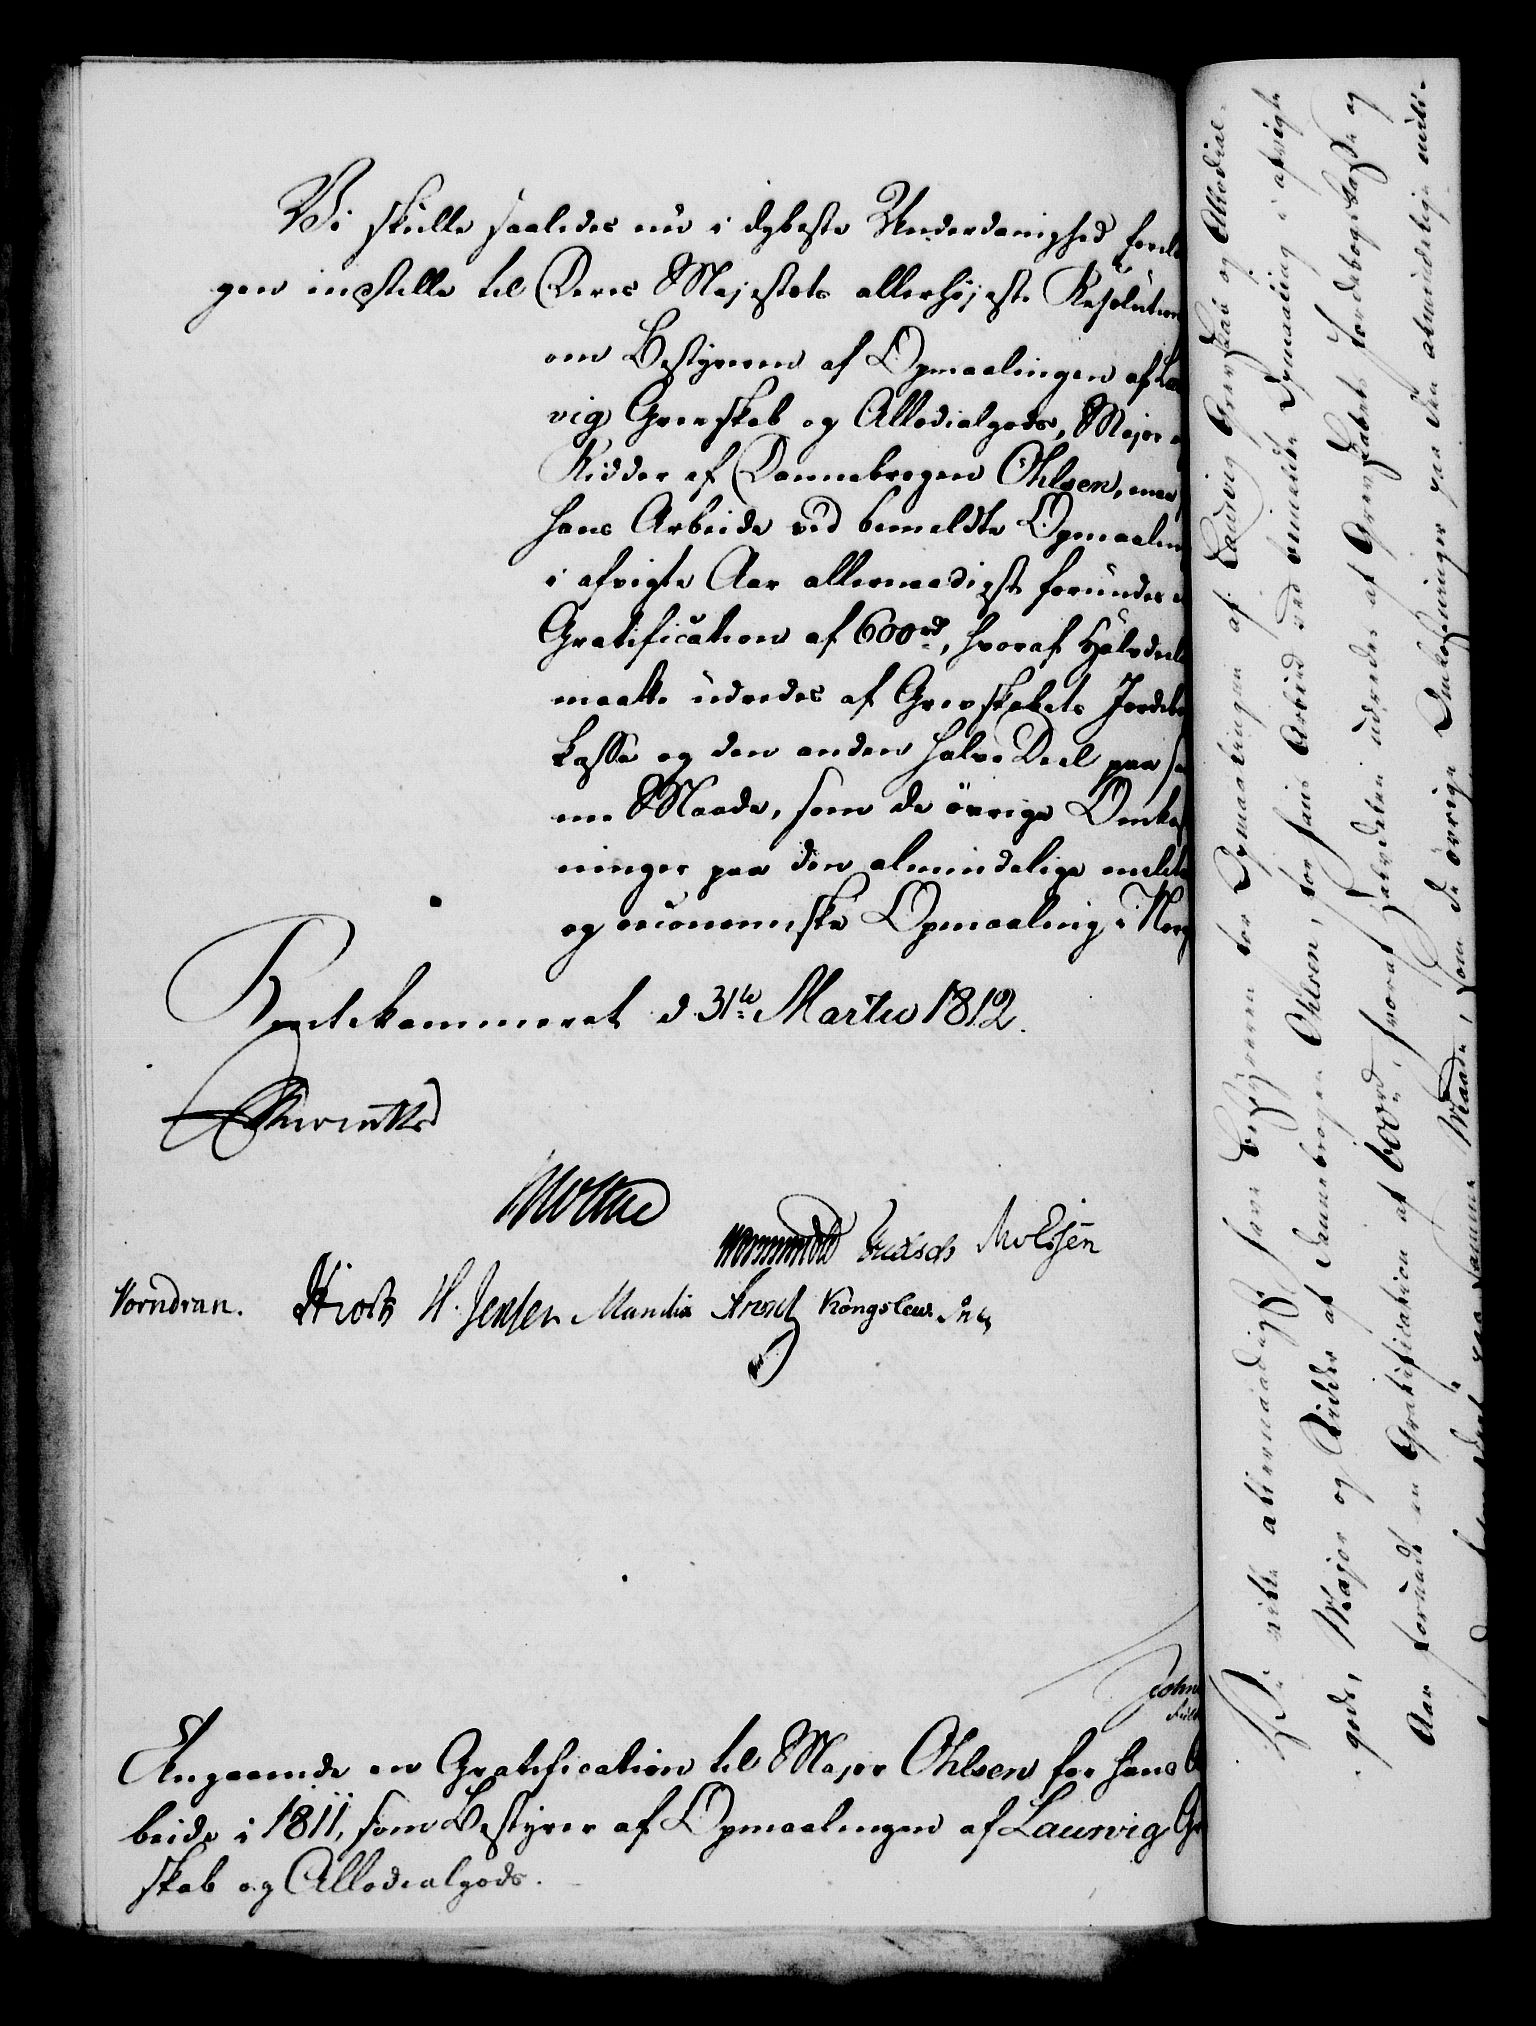 Vi skulle saaledes nu i dybeste Underdanighed forelæ
gen instille til Deres Majestæts allerhöjeste Resolution
om Bestyreren af Opmaalingen af Lau
vig Grevskab og Allodialgods, Major o
Ridder af Dannebrogen Öhlsen, maa
hans Arbeide ved bemeldte Opmaaling
i afvigte Aar allernaadigst forundes e
Gratification af 600 rd, hvoraf Halvdeel
maatte udredes af Grevskabets Jordebo
kasse og den anden halve Deel paa sa
me Maade, som de övrige Omkost
ninger paa den almindelige milita
og oeconomiske Opmaaling i Norg
Rentekammeret d. 31te Martii 1812.
Moltke
Wormskiold Knudsen
Vorndran. Hiort H. Jensen Kongslew
Angaaende en Gratification til Major Öhlsen for hans A
beide i 1811, som Bestyrer af Opmaalingen af Laurvig Gr
skab og Allodialgods.
Vi ville allernaadigst have Bestyreren for Opmaalingen af Laurvig Grevskab og Allodial-
gods, Major og Ridder af Dannebrogen Ohlsen, for hans Arbeid ved bemeldte Opmaaling i afvigte
Aar forundt en Gratification af 600 rd, hvoraf Halvdelen udredes af Grevskabets Jordebogskasse og
paa samme Maade, som de övrige Omkostninger paa den almindelige mili-